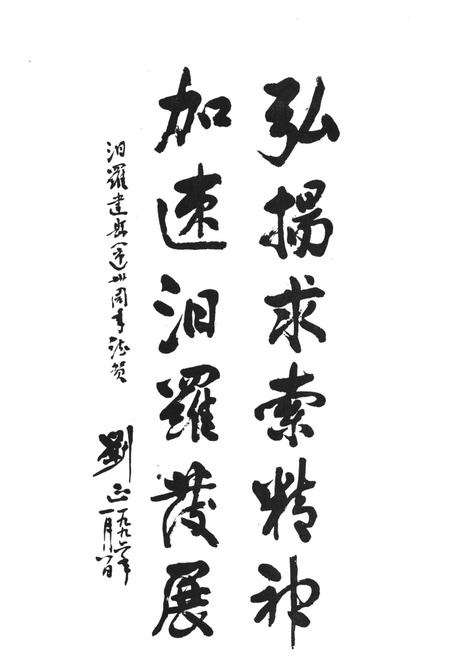 弘揚求索精神
加速汨羅發展
汨羅建縣卅周年志賀
劉正
一九九六年
一月八日